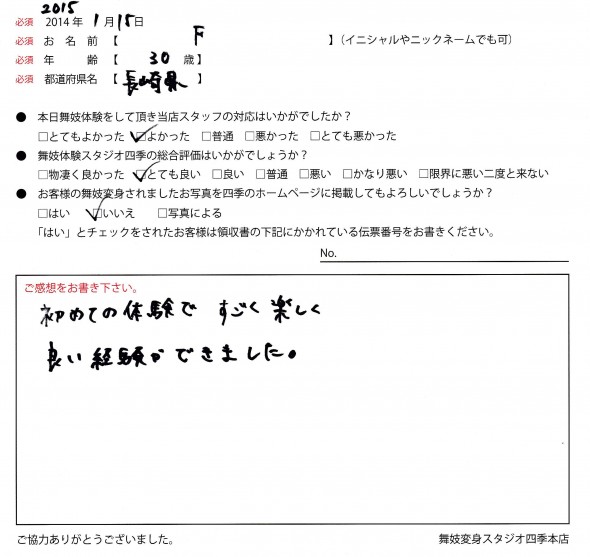 2015
必須 2014年 1月15日
必須 お名前【 F 】(イニシャルやニックネームでも可)
必須 年齢【 30 歳】
必須 都道府県名【 長崎県 】
● 本日舞妓体験をして頂き当店スタッフの対応はいかがでしたか?
□とてもよかった ☑よかった □普通 □悪かった □とても悪かった
● 舞妓体験スタジオ四季の総合評価はいかがでしょうか?
□物凄く良かった ☑とても良い □良い □普通 □悪い □かなり悪い □限界に悪い二度と来ない
● お客様の舞妓変身されましたお写真を四季のホームページに掲載してもよろしいでしょうか?
□はい ☑いいえ □写真による
「はい」とチェックをされたお客様は領収書の下記にかかれている伝票番号をお書きください。
No.
ご感想をお書き下さい。
初めての体験で すごく楽しく
良い経験ができました。
ご協力ありがとうございました。 舞妓変身スタジオ四季本店